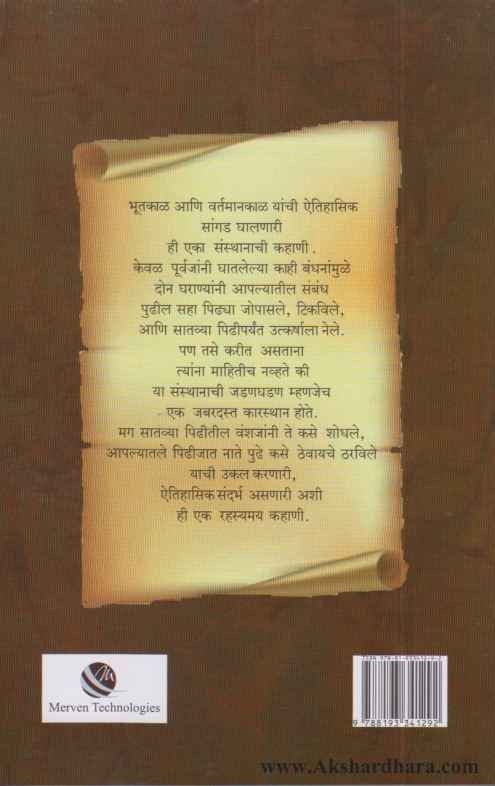 भूतकाळ आणि वर्तमानकाळ यांची ऐतिहासिक
सांगड घालणारी
ही एका संस्थानाची कहाणी .
केवळ पूर्वजांनी घातलेल्या काही बंधनांमुळे
दोन घराण्यांनी आपल्यातील संबंध
पुढील सहा पिढ्या जोपासले, टिकविले,
आणि सातव्या पिढीपर्यंत उत्कर्षाला नेले.
पण तसे करीत असताना
त्यांना माहितीच नव्हते की
या संस्थानाची जडणघडण म्हणजेच
एक जबरदस्त कारस्थान होते.
मग सातव्या पिढीतील वंशजांनी ते कसे शोधले,
आपल्यातले पिढीजात नाते पुढे कसे ठेवायचे ठरविले
याची उकल करणारी,
ऐतिहासिक संदर्भ असणारी अशी
ही एक रहस्यमय कहाणी.
Merven Technologies
ISBN
9 788193 341292
www.Akshardhara.com